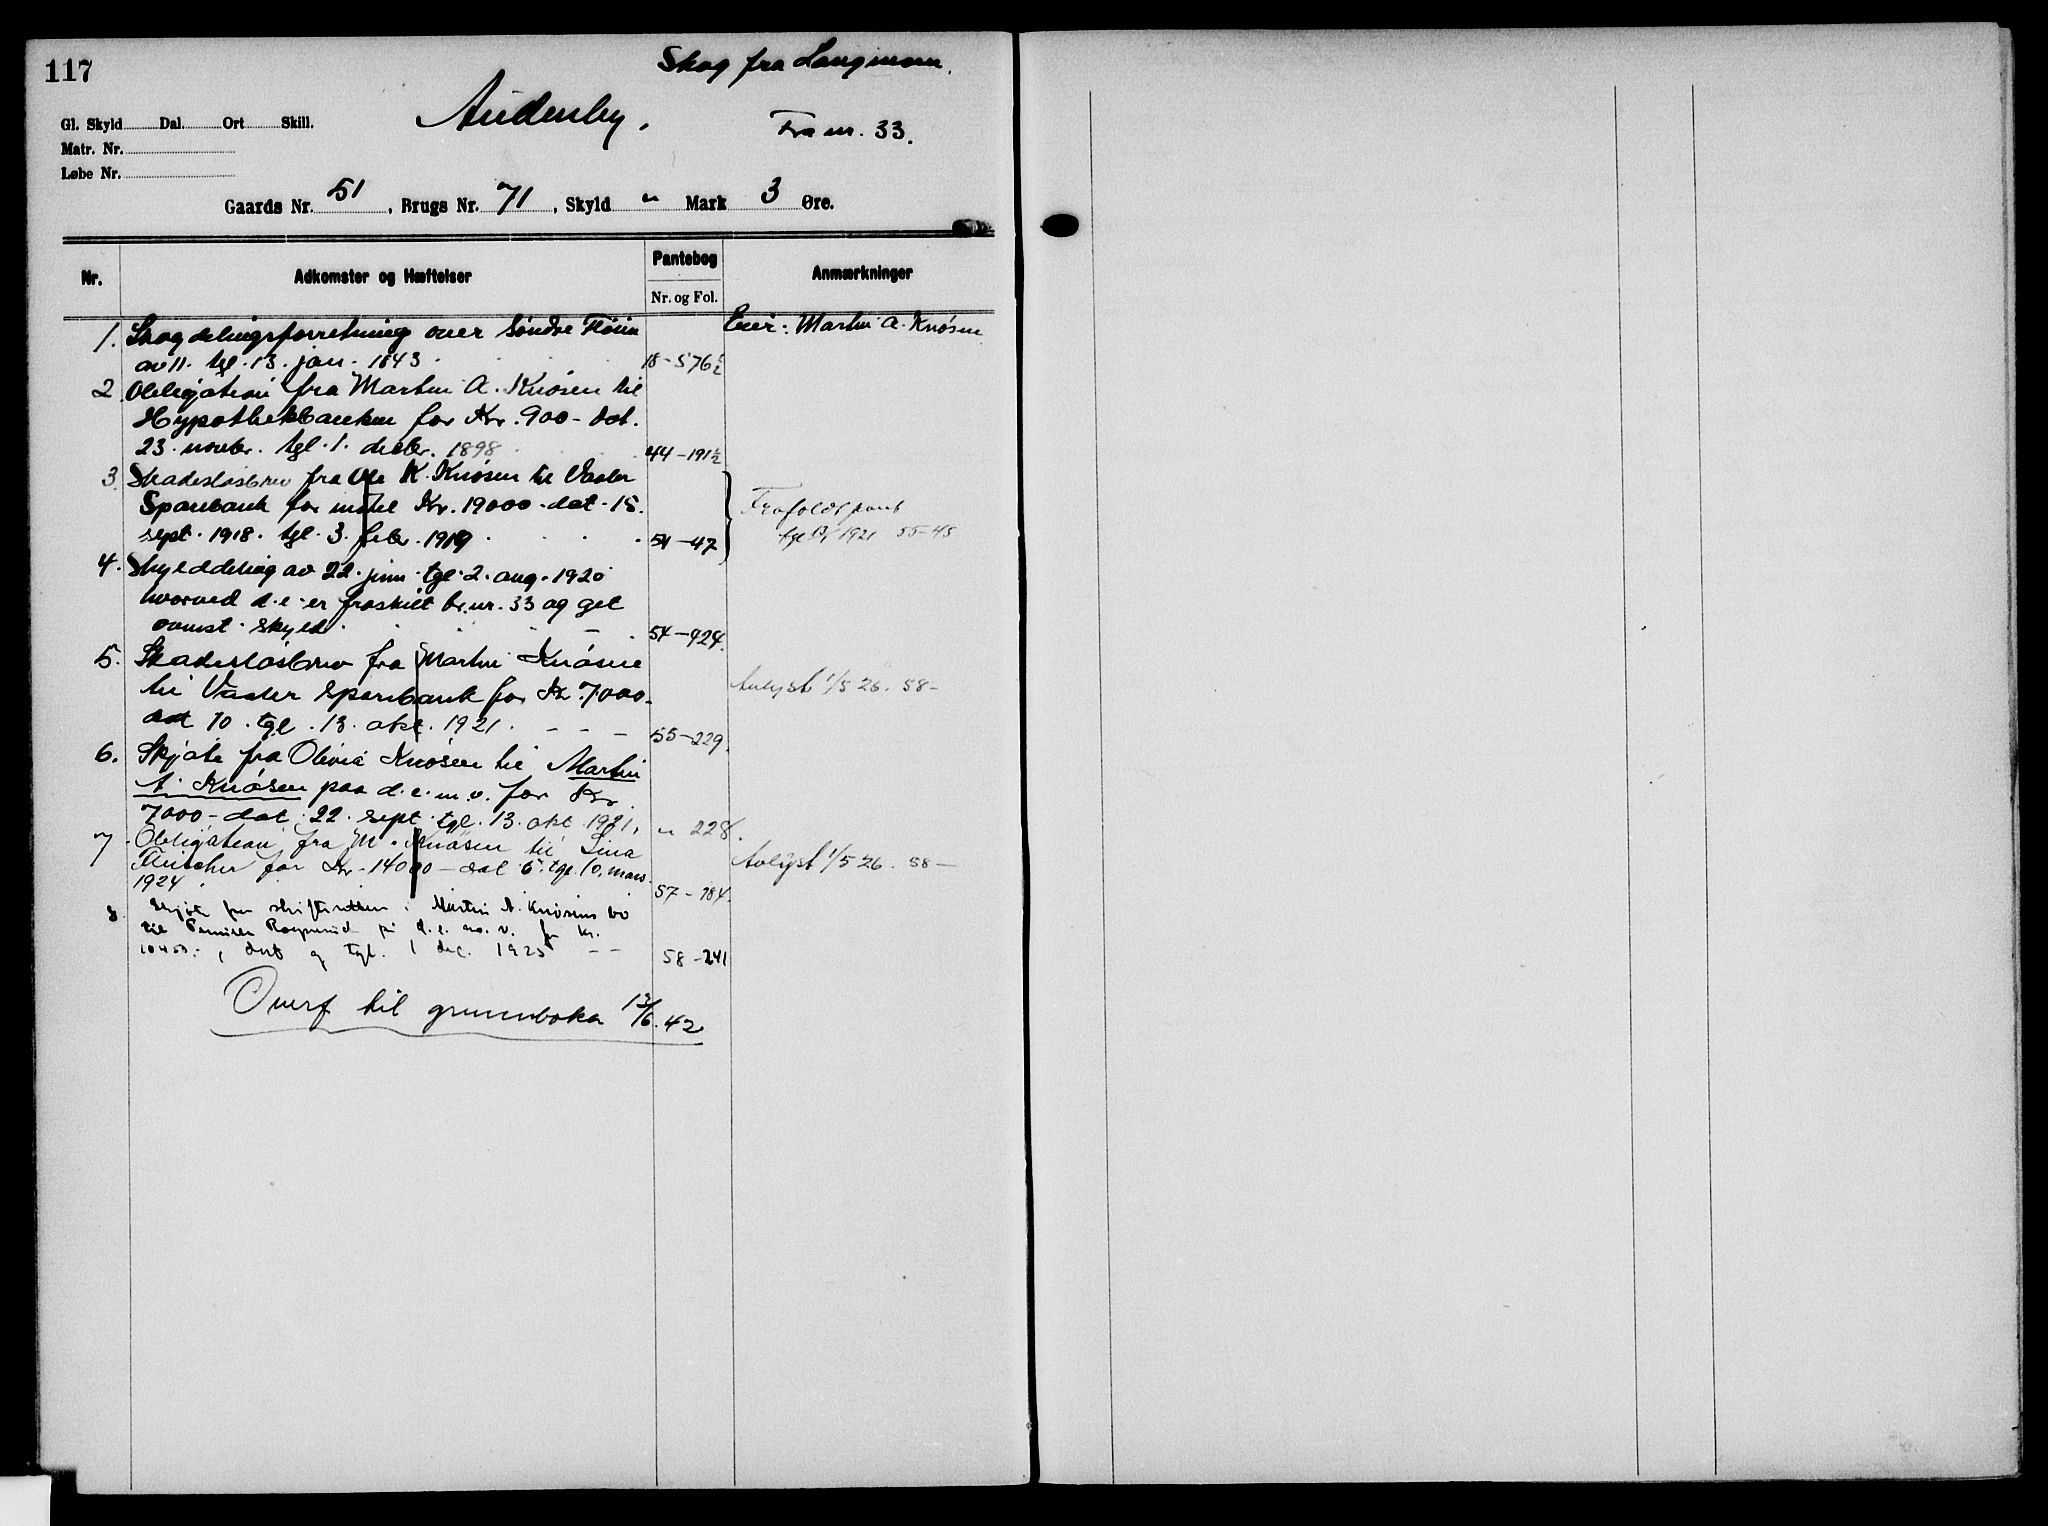 117
Skog fra Langmoen.
Audenby.
Fra nr. 33.
Gl. Skyld Dal. Ort Skill.
Matr. Nr.
Løbe Nr.
Gaards Nr. 51, Brugs Nr. 71, Skyld " Mark 3 Øre.
Nr. Adkomster og Hæftelser Pantebog Anmærkninger
Nr. og Fol.
1. Skogdelingsforretning over Søndre Eier: Martin A. Knøsen
av 11. tgl. 13. jan. 1843 18-576½
2. Obligation fra Martin A. Knøsen til
Hypothekbanken for Kr. 900- dat.
23. novbr. tgl. 1. decbr. 1898 44-191½
3. Skadesløsbrev fra Ole K. Knøsen til Vaaler
Sparebank for indtil Kr. 19000- dat. 15. Frafaldt pant
sept. 1918. tgl. 3. febr. 1919 54-47 tgl 1921 55-45
4. Skylddeling av 22. juni tgl. 2. aug. 1920
hvorved d.e. er fraskilt br.nr. 33 og git
ovnst. skyld. 54-924.
5. Skadesløsbrev fra Martin Knøsen
til Vaaler Sparebank for Kr. 7000- Avlyst 1/5 26. 58-
dat 10. tgl. 13. okt. 1921. 55-229.
6. Skjøte fra Olivia Knøsen til Martin
A. Knøsen paa d.e.m.v. for Kr.
7000- dat. 22. sept. tgl. 13. okt. 1921. " 228.
7. Obligation fra M. Knøsen til Lina
for Kr. 14000- dat 5. tgl. 10. mars Avlyst 1/5 26. 58-
1924. 57-184.
8. Skjøte fra skifteretten i Martin A. Knøsens bo
til på d.e. m.v. for kr.
dat. og tgl. 1 dec. 1925 58-241
Overf til grunnboka 13/6.42